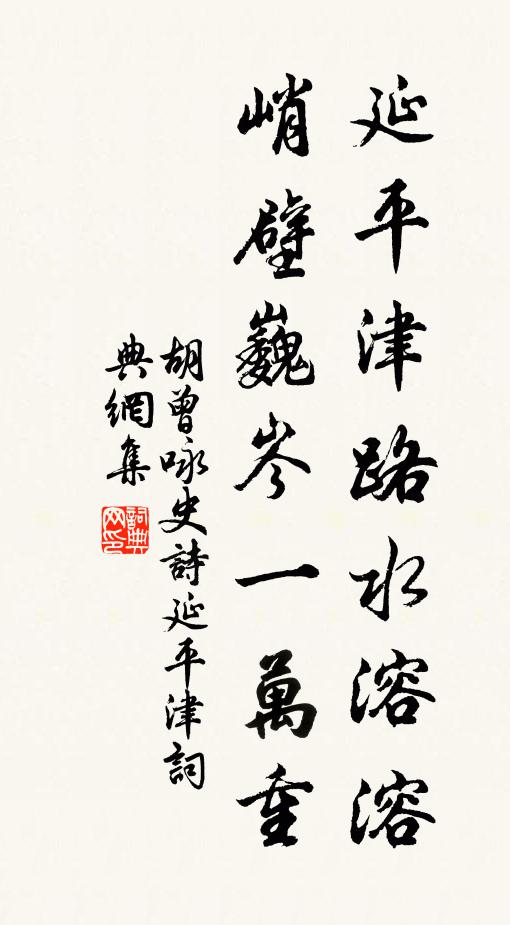 延平津路水溶溶
峭壁巍岑一萬重
胡曾咏史詩延平津詞
典網集
詞典
网印